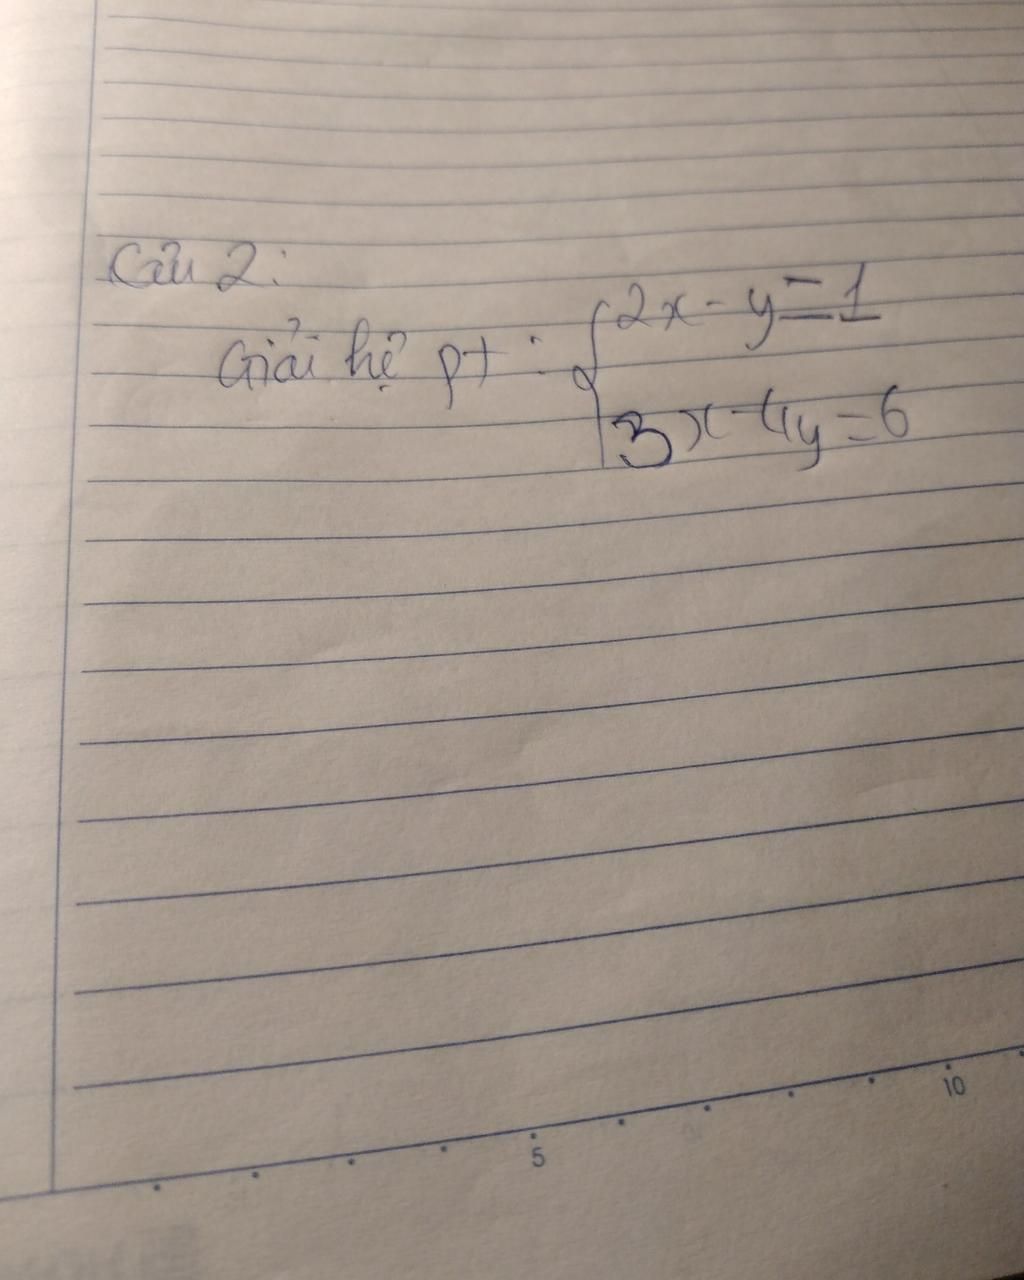 Câu 2:
Giải hệ pt : { 2x - y = 1
3x - 4y = 6
5
10